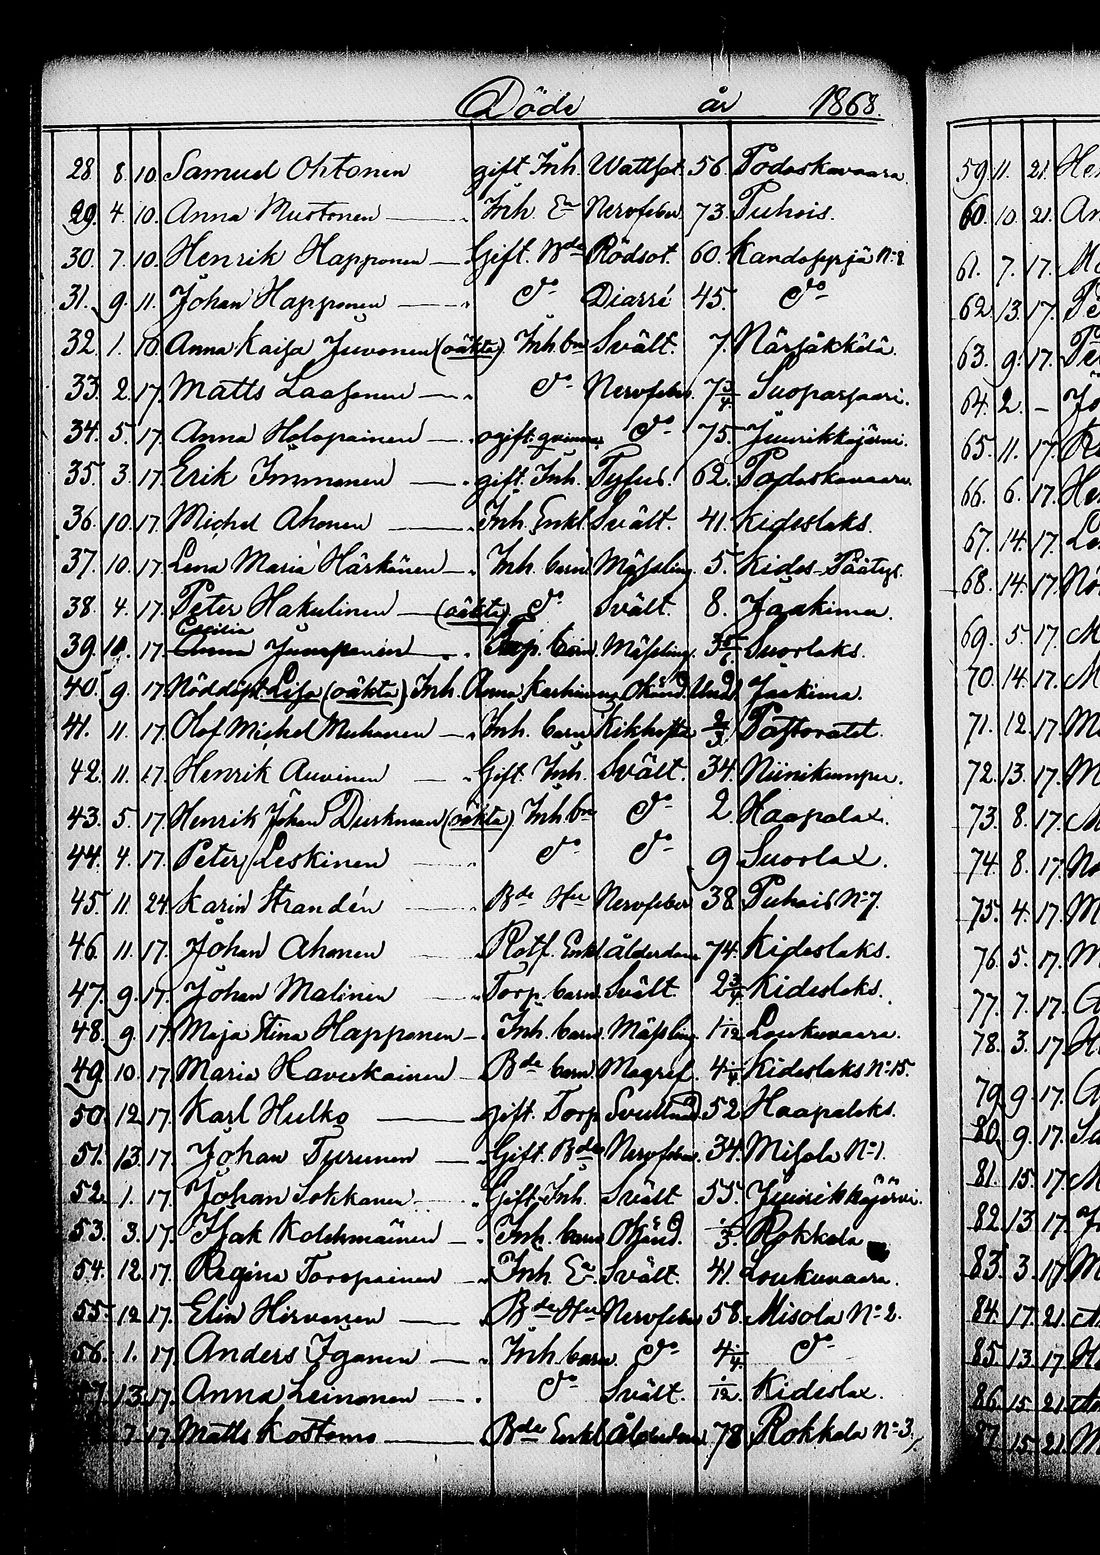 Döde år 1868.
28. 8. 10. Samuel Ohtonen gift Inh. Wattsot 56. Podoskavaara.
29. 4. 10. Anna Mustonen Inh. Ea Nervfeber 73. Puhois.
30. 7. 10. Henrik Happonen Gift. Bde Rödsot. 60. Kandoppjä No 8
31. 9. 11. Johan Happonen do Diarré 45. do
32. 1. 10. Anna Kaisa Juvonen (oäkta) Inh. bn Svält. 7. Närsäkkälä.
33. 2. 17. Matts Laasonen do Nervfeber 7 3/4. Suoparsaari.
34. 5. 17. Anna Holopainen ogift qvinna do 75. Juurikkajärvi.
35. 3. 17. Erik Immonen gift. Inh. Tyfus. 62. Podoskavaara
36. 10. 17. Michel Ahonen Inh. Enkl. Svält. 41. Kideslaks.
37. 10. 17. Lena Maria Härkönen Inh. barn Mässling 5. Kides-Päätys.
38. 4. 17. Peter Hakulinen (oäkta) do Svält. 8. Jaakima.
39. 10. 17. Cecilia Anna Jumpanen Torp. barn Mässling. 3 5/6. Suorlaks.
40. 9. 17. Nöddöpt Lisa (oäkta) Inh. Anna Karhinens Okänd. Jaakima.
41. 11. 17. Olof Michel Muhonen Inh. barn Kikhosta 2/3. Pastoratet.
42. 11. 17. Henrik Auvinen Gift. Inh. Svält. 34. Niinikumpu.
43. 5. 17. Henrik Johan Durkman (oäkta) Inh. bn do 2. Haapalax.
44. 4. 17. Peter Leskinen do do 9 Suorlax.
45. 11. 24. Karin Strandén Bde Hu Nervfeber 38. Puhois No 7.
46. 11. 17. Johan Ahonen Rotf. Enkl. Ålderdom 74. Kideslaks.
47. 9. 17. Johan Malinen Torp. barn. Svält 2 3/4 Kideslaks.
48. 9. 17. Maja Stina Happonen Inh. barn. Mässling 1 1/12 Loukuvaara.
49. 10. 17. Maria Haverkainen Bde barn. Magref. 4 1/4. Kideslaks No 15.
50. 12. 17. Karl Hulko gift. Torp. Svullnad 52. Haapalaks.
51. 13. 17. Johan Turunen Gift. Bde Nervfeber 34. Misola No 1.
52. 1. 17. Johan Sokkanen Gift. Inh. Svält 55. Juurikkajärvi.
53. 3. 17. Isak Kolehmäinen Inh. barn Okänd. 1/3. Rokkala
54. 12. 17. Regina Toropainen Inh Ea Svält. 41. Loukuvaara.
55. 12. 17. Elin Hirvonen Bde Hu Nervfeber 58. Misola No 2.
56. 1. 17. Anders Iganen Inh. barn. do 4 1/4. do
57. 13. 17. Anna Leinonen do Svält. 1/12. Kideslax.
7. 17. Matts Kostamo Bde Enkl. Ålderdom 78. Rokkala No 3.
59. 11. 21. He
60. 10. 21. An
61. 7. 17. Ma
62. 13. 17. Pe
63. 9. 17. Pe
64. 2. – Jo
65. 11. 17.
66. 6. 17. He
67. 14. 17. Le
68. 14. 17. Nö
69. 5. 17. M
70. 14. 17. M
71. 12. 17. Ma
72. 13. 17. M
73. 8. 17. M
74. 8. 17. No
75. 4. 17. M
76. 5. 17. M
77. 7. 17.
78. 3. 17. H
79. 9. 17.
80. 9. 17.
81. 15. 17. M
82. 13. 17.
83. 3. 17. M
84. 17. 21.
85. 13. 17. H
86. 15. 21.
87. 15. 21. M